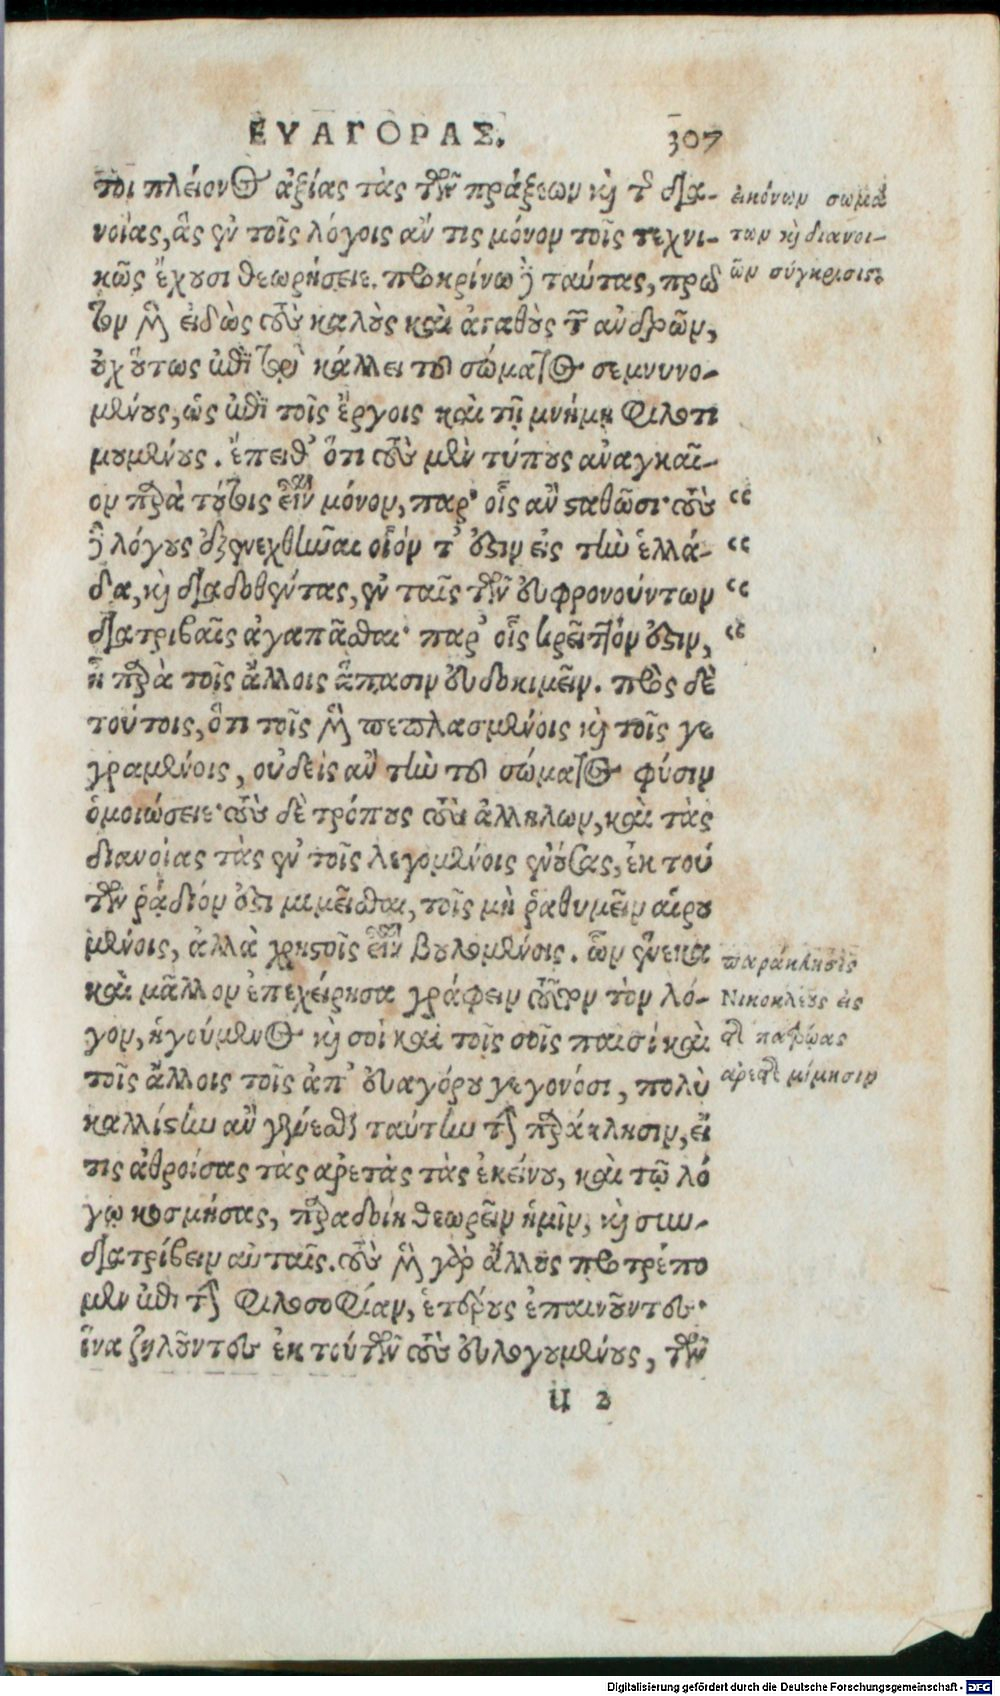 ΕΥΑΓΟΡΑΣ. 307
τοι πλείονος ἀξίας τὰς τῶν πράξεων καὶ τῆς δια-
νοίας, ἃς ἐν τοῖς λόγοις ἄν τις μόνον τοῖς τεχνι-
κῶς ἔχουσι θεωρήσειε. προκρίνω δὲ ταύτας, πρῶ
τον μὲν εἰδὼς τοὺς καλοὺς καὶ ἀγαθοὺς τῶν ἀνδρῶν,
οὐχ οὕτως ἐπὶ τῷ κάλλει τοῦ σώματος σεμνυνο-
μένους, ὡς ἐπὶ τοῖς ἔργοις καὶ τῇ μνήμῃ φιλοτι
μουμένους. ἔπειθ' ὅτι τοὺς μὲν τύπους ἀναγκαῖ-
ον παρὰ τούτοις εἶναι μόνον, παρ' οἷς ἂν σταθῶσι· τοὺς “
δὲ λόγους ἐξενεχθῆναι οἷόν τ' ἐστὶν εἰς τὴν ἑλλά- “
δα, καὶ διαδοθέντας, ἐν ταῖς τῶν εὐφρονούντων “
διατριβαῖς ἀγαπᾶσθαι· παρ' οἷς κρεῖττόν ἐστιν, “
ἢ παρὰ τοῖς ἄλλοις ἅπασιν εὐδοκιμεῖν. πρὸς δὲ
τούτοις, ὅτι τοῖς μὲν πεπλασμένοις καὶ τοῖς γε
γραμένοις, οὐδεὶς ἂν τὴν τοῦ σώματος φύσιν
ὁμοιώσειε· τοὺς δὲ τρόπους τοὺς ἀλλήλων, καὶ τὰς
διανοίας τὰς ἐν τοῖς λεγομένοις ἐνούσας, ἐκ τού
των ῥᾴδιόν ἐστι μιμεῖσθαι, τοῖς μὴ ῥαθυμεῖν αἱρου
μένοις, ἀλλὰ χρηστοῖς εἶναι βουλομένοις. ὧν ἕνεκα
καὶ μᾶλλον ἐπεχείρησα γράφειν τοῦτον τὸν λό-
γον, ἡγούμενος καὶ σοὶ καὶ τοῖς σοῖς παισὶ καὶ
τοῖς ἄλλοις τοῖς ἀπ' εὐαγόρου γεγονόσι, πολὺ
καλλίστην ἂν γενέσθαι ταύτην τὴν παράκλησιν, εἴ
τις ἀθροίσας τὰς ἀρετὰς τὰς ἐκείνου, καὶ τῷ λό
γῳ κοσμήσας, παραδοίη θεωρεῖν ἡμῖν, καὶ συν-
διατρίβειν αὐταῖς. τοὺς μὲν γὰρ ἄλλους προτρέπο
μεν ἐπὶ τὴν φιλοσοφίαν, ἑτέρους ἐπαινοῦντες·
ἵνα ζηλοῦντες ἐκ τούτων τοὺς εὐλογουμένους, τῶν
U 2
εἰκόνων σωμά
των καὶ διανοι-
ῶν σύγκρισις.
παράκλησις
Νικοκλέους εἰς
τῆς πατρῴας
ἀρετῆς μίμησιν
Digitalisierung gefördert durch die Deutsche Forschungsgemeinschaft - DFG